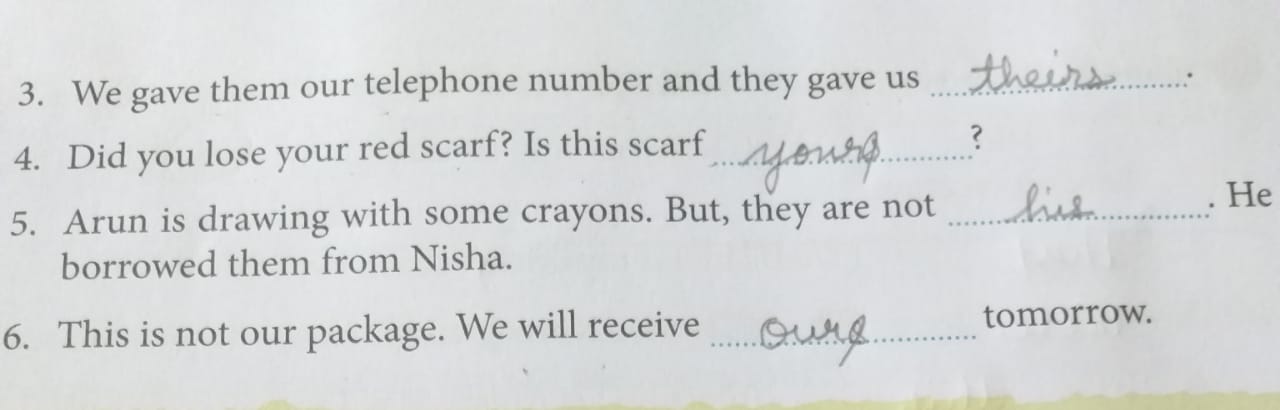 3. We gave them our telephone number and they gave us theirs.
4. Did you lose your red scarf? Is this scarf yours?
5. Arun is drawing with some crayons. But, they are not his. He
borrowed them from Nisha.
6. This is not our package. We will receive ours tomorrow.